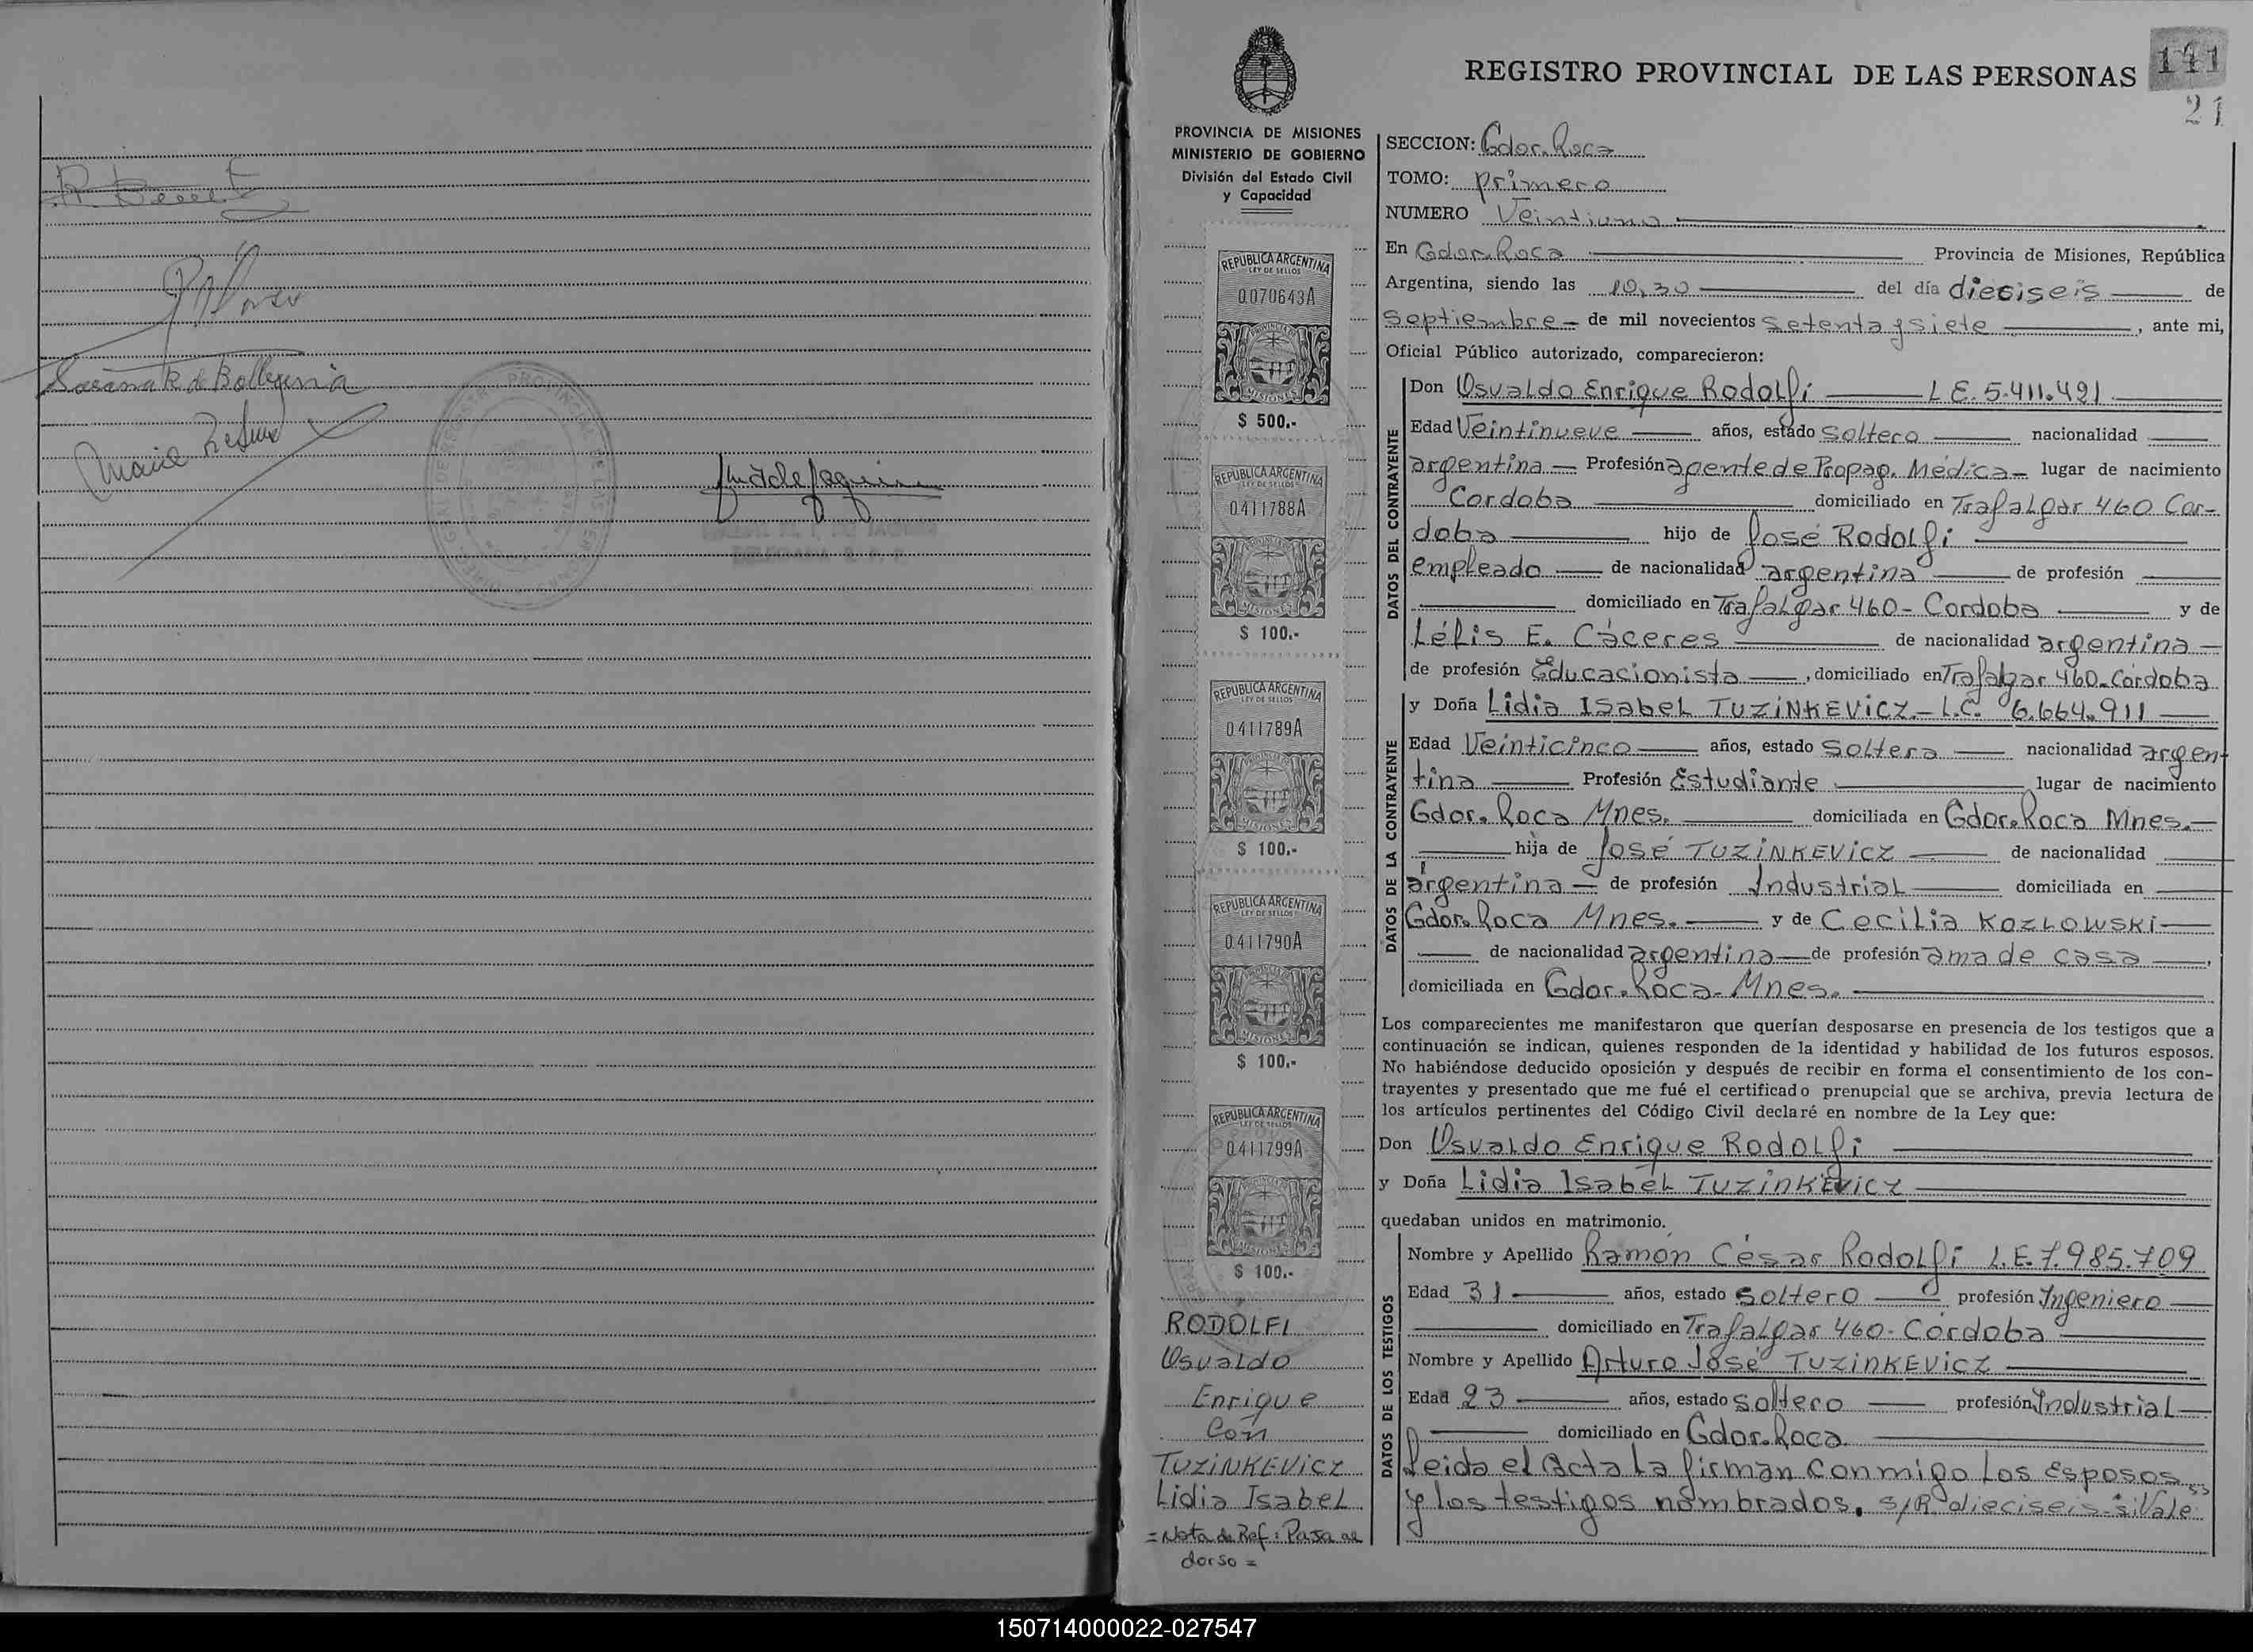 Susana R de Bollegeria
REGISTRO PROVINCIAL DE LAS PERSONAS
141
21
PROVINCIA DE MISIONES
MINISTERIO DE GOBIERNO
División del Estado Civil
y Capacidad
REPUBLICA ARGENTINA
LEY DE SELLOS
0070643A
$ 500.-
REPUBLICA ARGENTINA
LEY DE SELLOS
0411788A
$ 100.-
REPUBLICA ARGENTINA
LEY DE SELLOS
0411789A
$ 100.-
REPUBLICA ARGENTINA
LEY DE SELLOS
0411790A
$ 100.-
REPUBLICA ARGENTINA
LEY DE SELLOS
0411799A
$ 100.-
RODOLFI
Osvaldo
Enrique
Con
TUZINKEVICZ
Lidia Isabel
=Nota de Ref: Pasa al
dorso =
SECCION: Gdor. Roca
TOMO: primero
NUMERO Veintiuno
En Gdor. Roca Provincia de Misiones, República
Argentina, siendo las 10,30 del día dieciseis de
septiembre - de mil novecientos setenta y siete, ante mi,
Oficial Público autorizado, comparecieron:
DATOS DEL CONTRAYENTE
Don Osvaldo Enrique Rodolfi L E. 5.411.491
Edad Veintinueve años, estado soltero nacionalidad
argentina - Profesión agente de Propag. Médica - lugar de nacimiento
Cordoba domiciliado en Trafalgar 460 Cor-
doba hijo de José Rodolfi
empleado de nacionalidad argentina de profesión
domiciliado en Trafalgar 460 - Cordoba y de
Lélis E. Cáceres de nacionalidad argentina -
de profesión Educacionista, domiciliado en Trafalgar 460-Córdoba
DATOS DE LA CONTRAYENTE
y Doña Lidia Isabel TUZINKEVICZ.- L.C. 6.664.911
Edad Veinticinco años, estado soltera nacionalidad argen-
tina Profesión Estudiante lugar de nacimiento
Gdor. Roca Mnes. domiciliada en Gdor. Roca Mnes.-
hija de José TUZINKEVICZ de nacionalidad
argentina - de profesión Industrial domiciliada en
Gdor. Roca Mnes. y de Cecilia KOZLOWSKI
de nacionalidad argentina de profesión ama de casa,
domiciliada en Gdor. Roca - Mnes.
Los comparecientes me manifestaron que querían desposarse en presencia de los testigos que a
continuación se indican, quienes responden de la identidad y habilidad de los futuros esposos.
No habiéndose deducido oposición y después de recibir en forma el consentimiento de los con-
trayentes y presentado que me fué el certificado prenupcial que se archiva, previa lectura de
los artículos pertinentes del Código Civil declaré en nombre de la Ley que:
Don Osvaldo Enrique Rodolfi
y Doña Lidia Isabel TUZINKEVICZ
quedaban unidos en matrimonio.
DATOS DE LOS TESTIGOS
Nombre y Apellido Ramón César Rodolfi L.E. 7.985.709
Edad 31 años, estado soltero profesión Ingeniero
domiciliado en Trafalgar 460 - Córdoba
Nombre y Apellido Arturo José TUZINKEVICZ
Edad 23 años, estado soltero profesión Industrial
domiciliado en Gdor. Roca
Leida el acta la firman conmigo los esposos
y los testigos nombrados. s/R dieciseis-si Vale
150714000022-027547